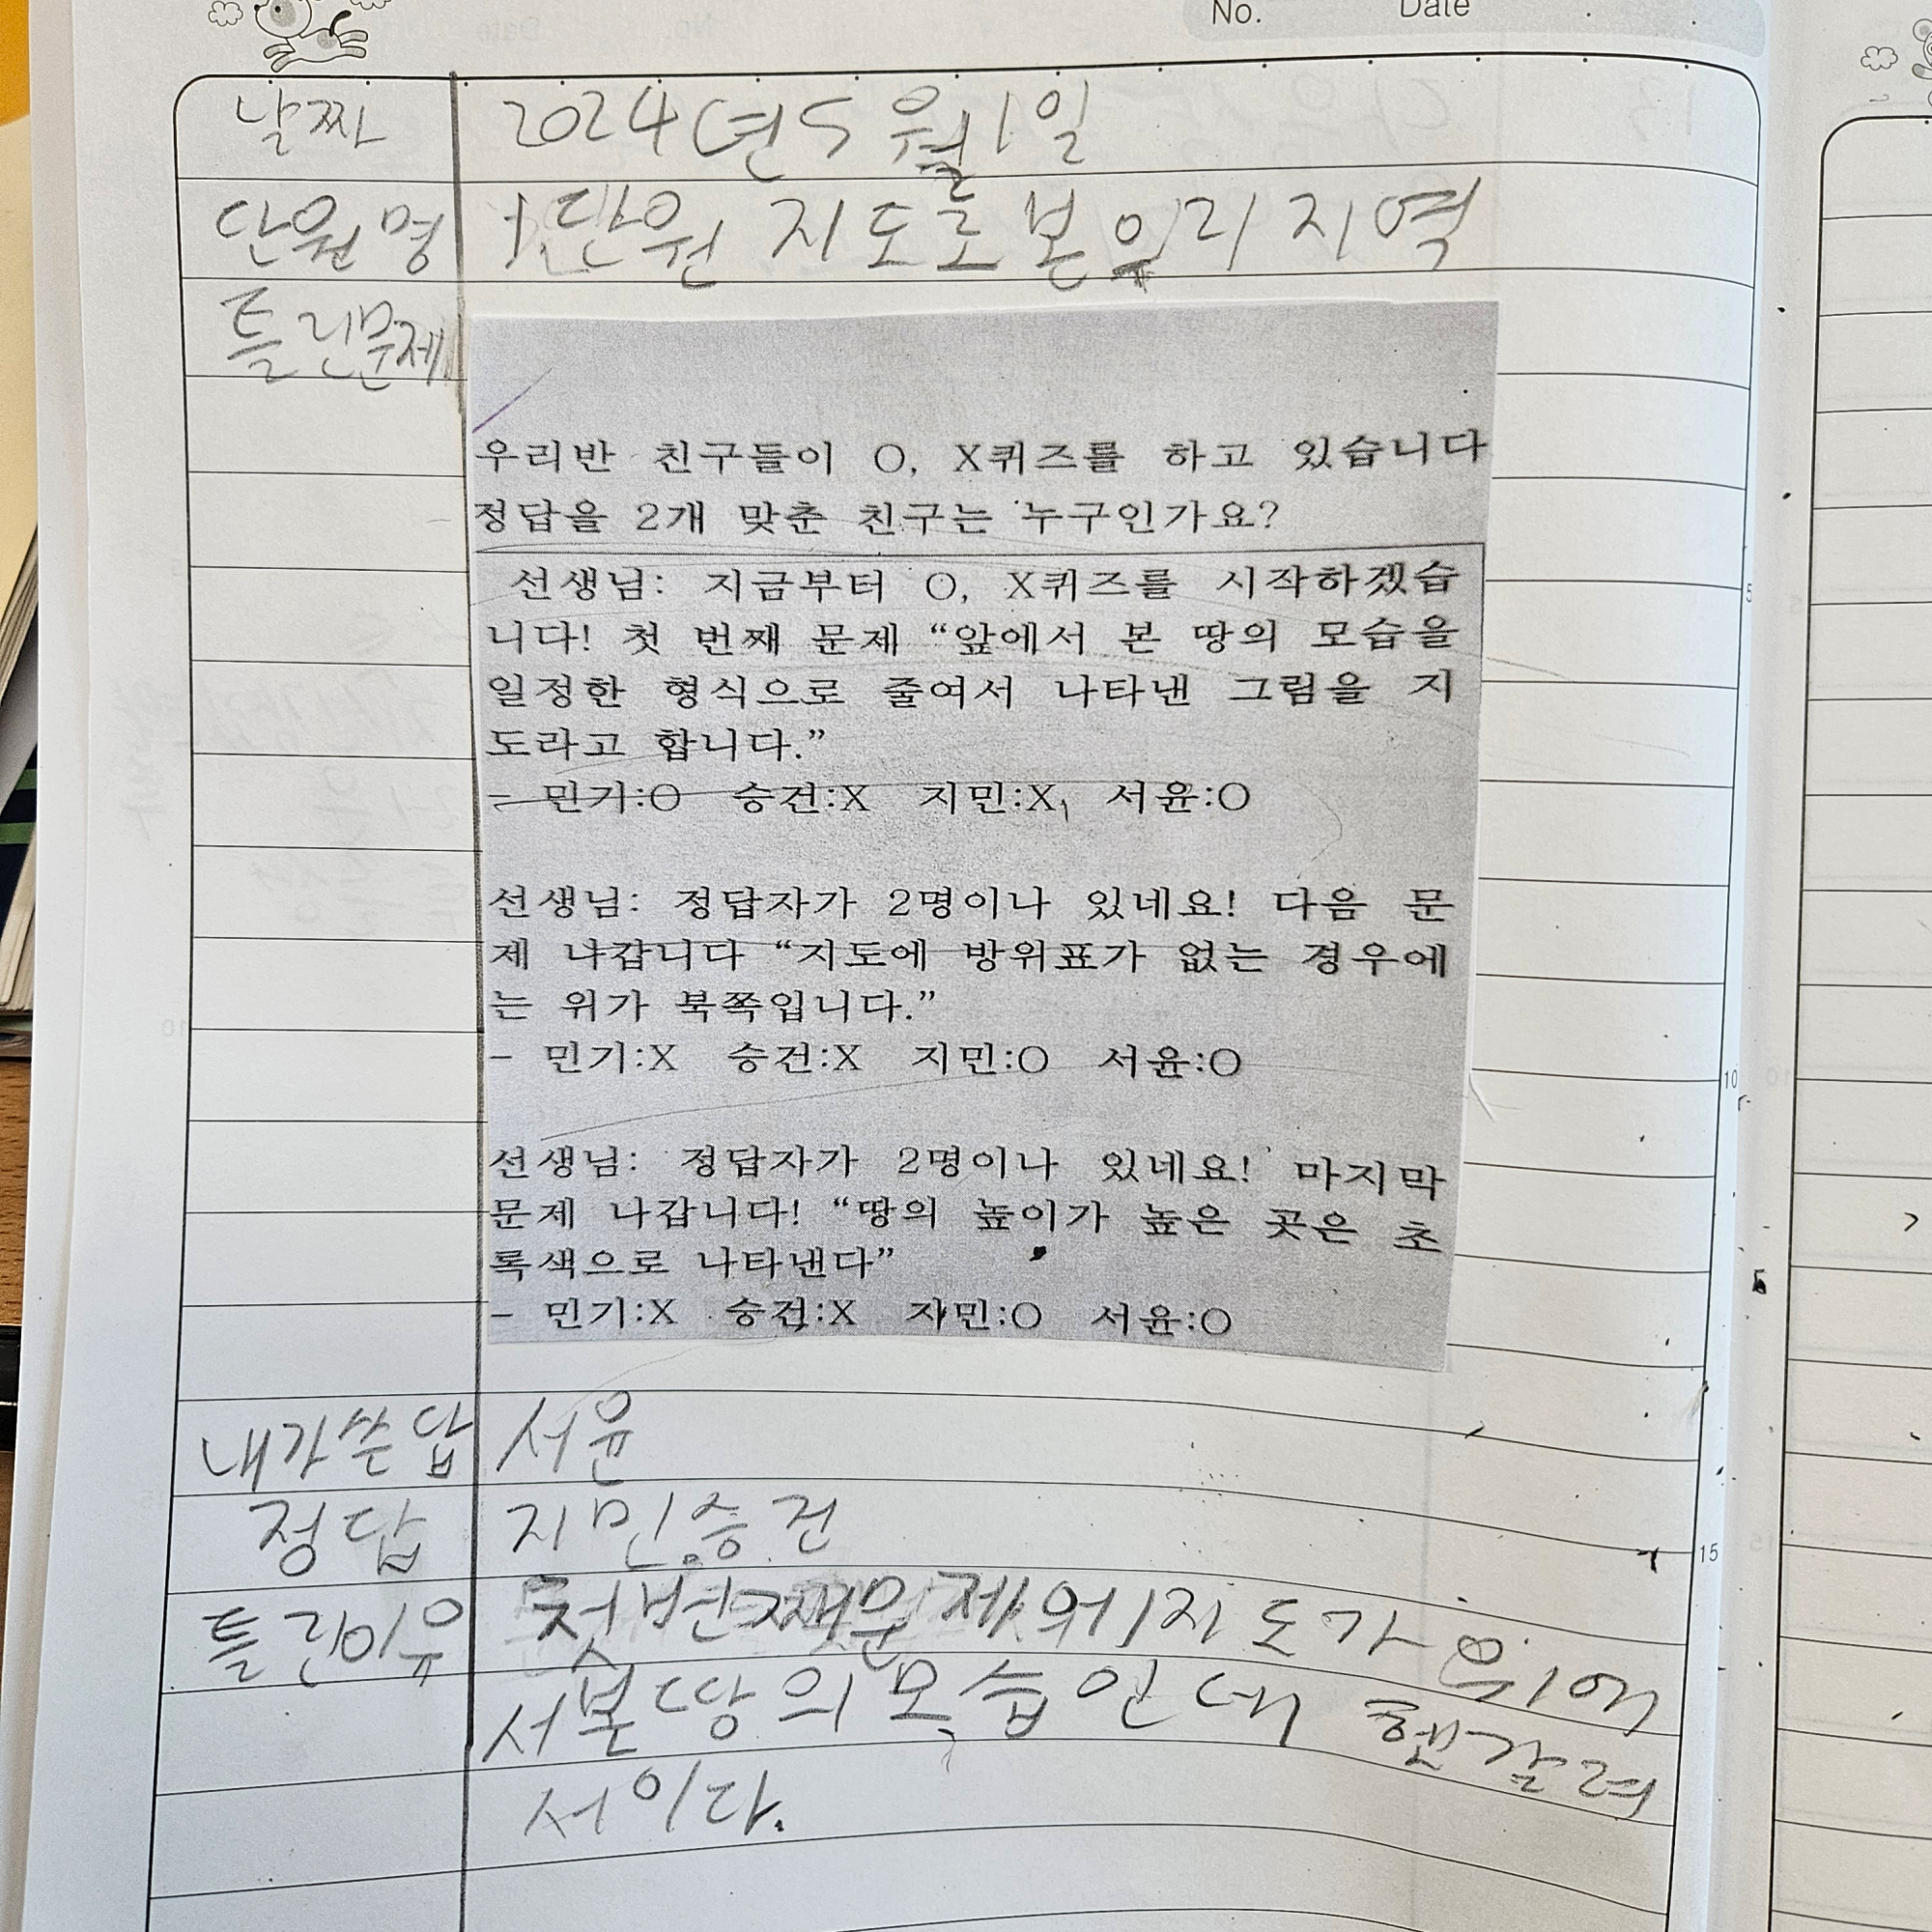 No. Date
날짜 2024년 5월 1일
단원명 1. 단원 지도로 본 우리 지역
틀린문제
우리반 친구들이 O, X퀴즈를 하고 있습니다
정답을 2개 맞춘 친구는 누구인가요?
선생님: 지금부터 O, X퀴즈를 시작하겠습
니다! 첫 번째 문제 “앞에서 본 땅의 모습을
일정한 형식으로 줄여서 나타낸 그림을 지
도라고 합니다.”
- 민기:O 승건:X 지민:X, 서윤:O
선생님: 정답자가 2명이나 있네요! 다음 문
제 나갑니다 “지도에 방위표가 없는 경우에
는 위가 북쪽입니다.”
- 민기:X 승건:X 지민:O 서윤:O
선생님: 정답자가 2명이나 있네요! 마지막
문제 나갑니다! “땅의 높이가 높은 곳은 초
록색으로 나타낸다”
- 민기:X 승건:X 지민:O 서윤:O
내가쓴답 서윤
정답 지민, 승건
틀린이유 첫번째문제에 지도가 위에
서본땅의모습인데 헷갈려
서이다.
5
10
15